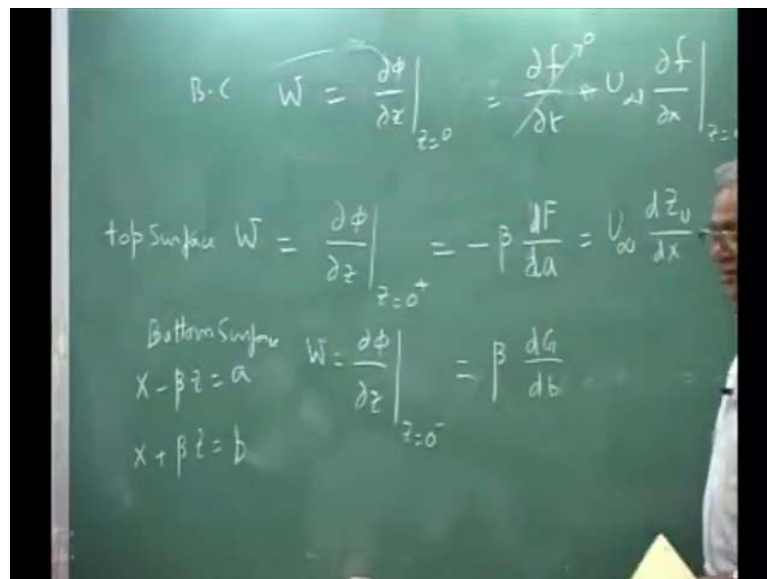 B.C W = ∂ϕ/∂z |z=0 = ∂f/∂t 0 + U∞ ∂f/∂x |z=0
top Surface W = ∂ϕ/∂z |z=0⁺ = -β dF/da = U∞ dZu/dx
Bottom Surface W = ∂ϕ/∂z |z=0⁻ = β dG/db
x - βz = a
x + βz = b